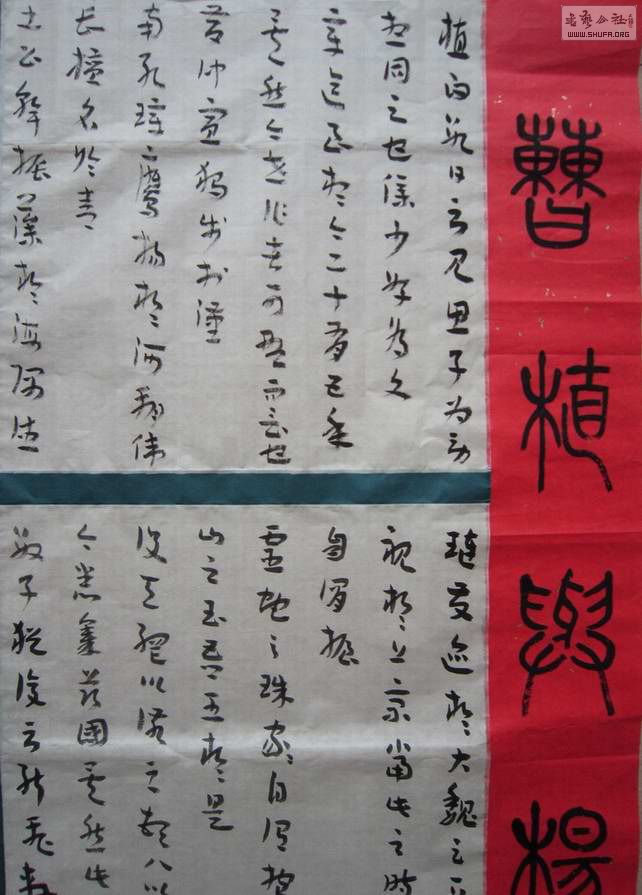 曹植與楊
植白數日不見思子為勞
想同之也僕少好為文
章迄至於今二十有五年
矣然今世作者可略而言也
昔仲宣獨步於漢
南孔璋鷹揚於河朔偉
長擅名於青
土公幹振藻於海隅德
璉發迹於大魏足
視於上京當此之時
自謂握
靈蛇之珠家家自謂抱
山之玉吾王於是
設天網以該之頓八以
今悉集茲國矣然此
數子猶復不能飛軒
WWW.SHUFA.ORG